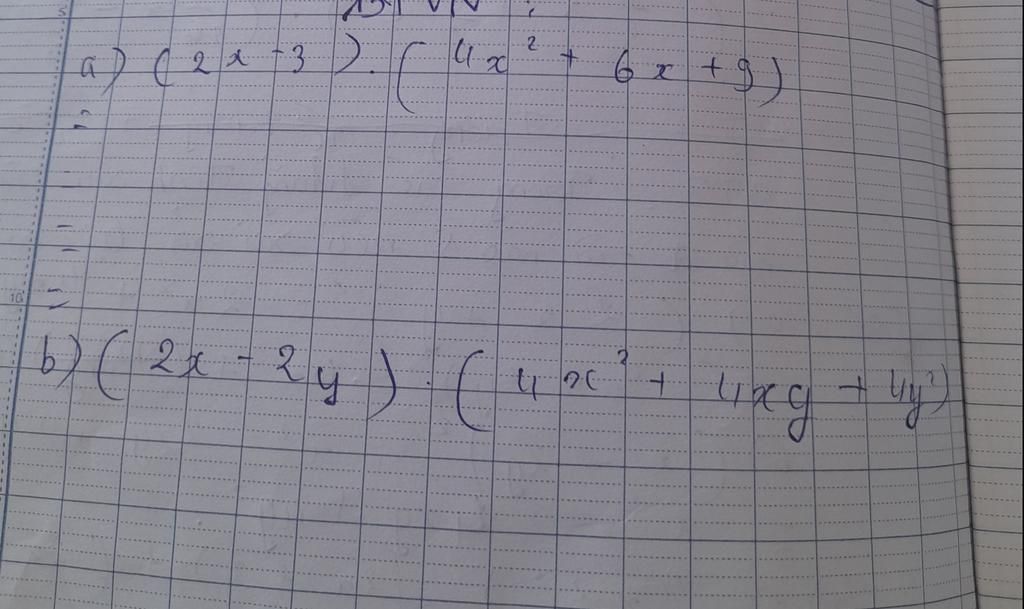 a) (2x - 3) . (4x² + 6x + 9)
=
=
=
=
b) (2x - 2y) . (4x² + 4xy + 4y²)